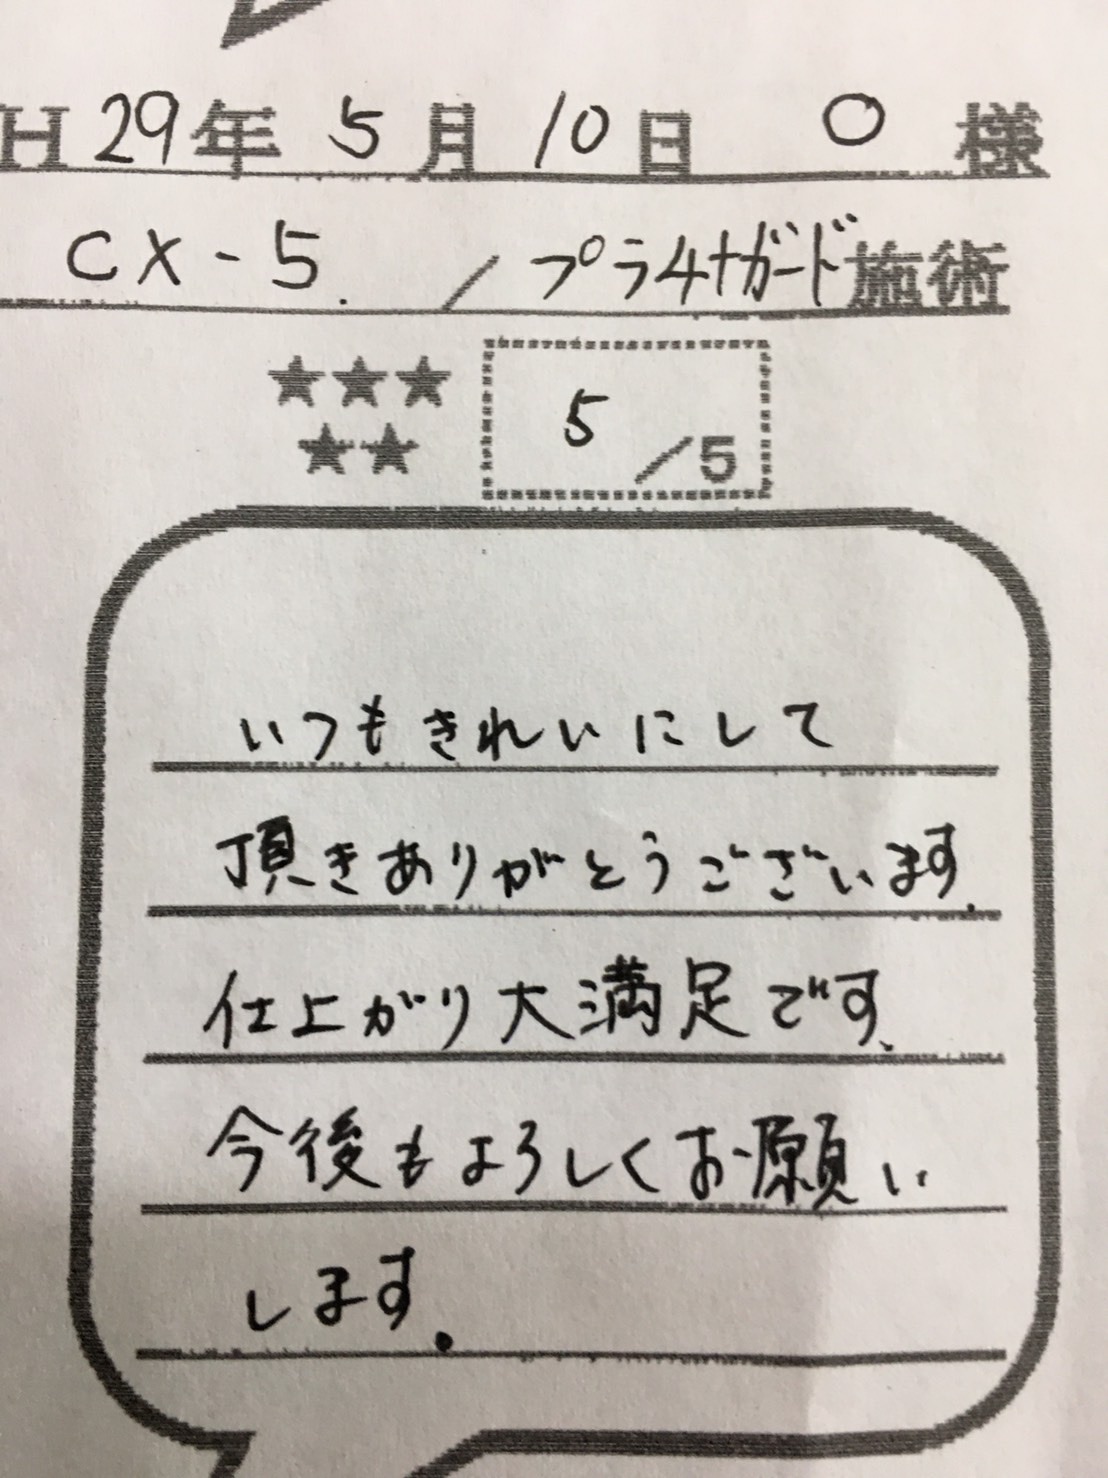 H29年 5月10日 O 様
CX-5. / プラチナガード施術
★★★ 5/5
★★
いつもきれいにして
頂きありがとうございます.
仕上がり大満足です、
今後もよろしくお願い
します.